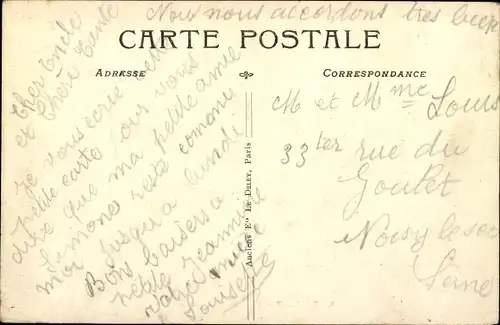 Nous nous accordons très bien
CARTE POSTALE
ADRESSE
CORRESPONDANCE
Cher Oncle
et Chère Tante
Je vous écrie cette
petite carte pour vous
dire que ma petite amie
Simone reste comame
moi jusqu'a lundi
Bons baisers a
petite Jeannine
Votre nièce
Louisette
Anciens Ets LE DELEY, Paris
M et Mme Louis
33ter rue du
Goulet
Noisy le sec
Seine